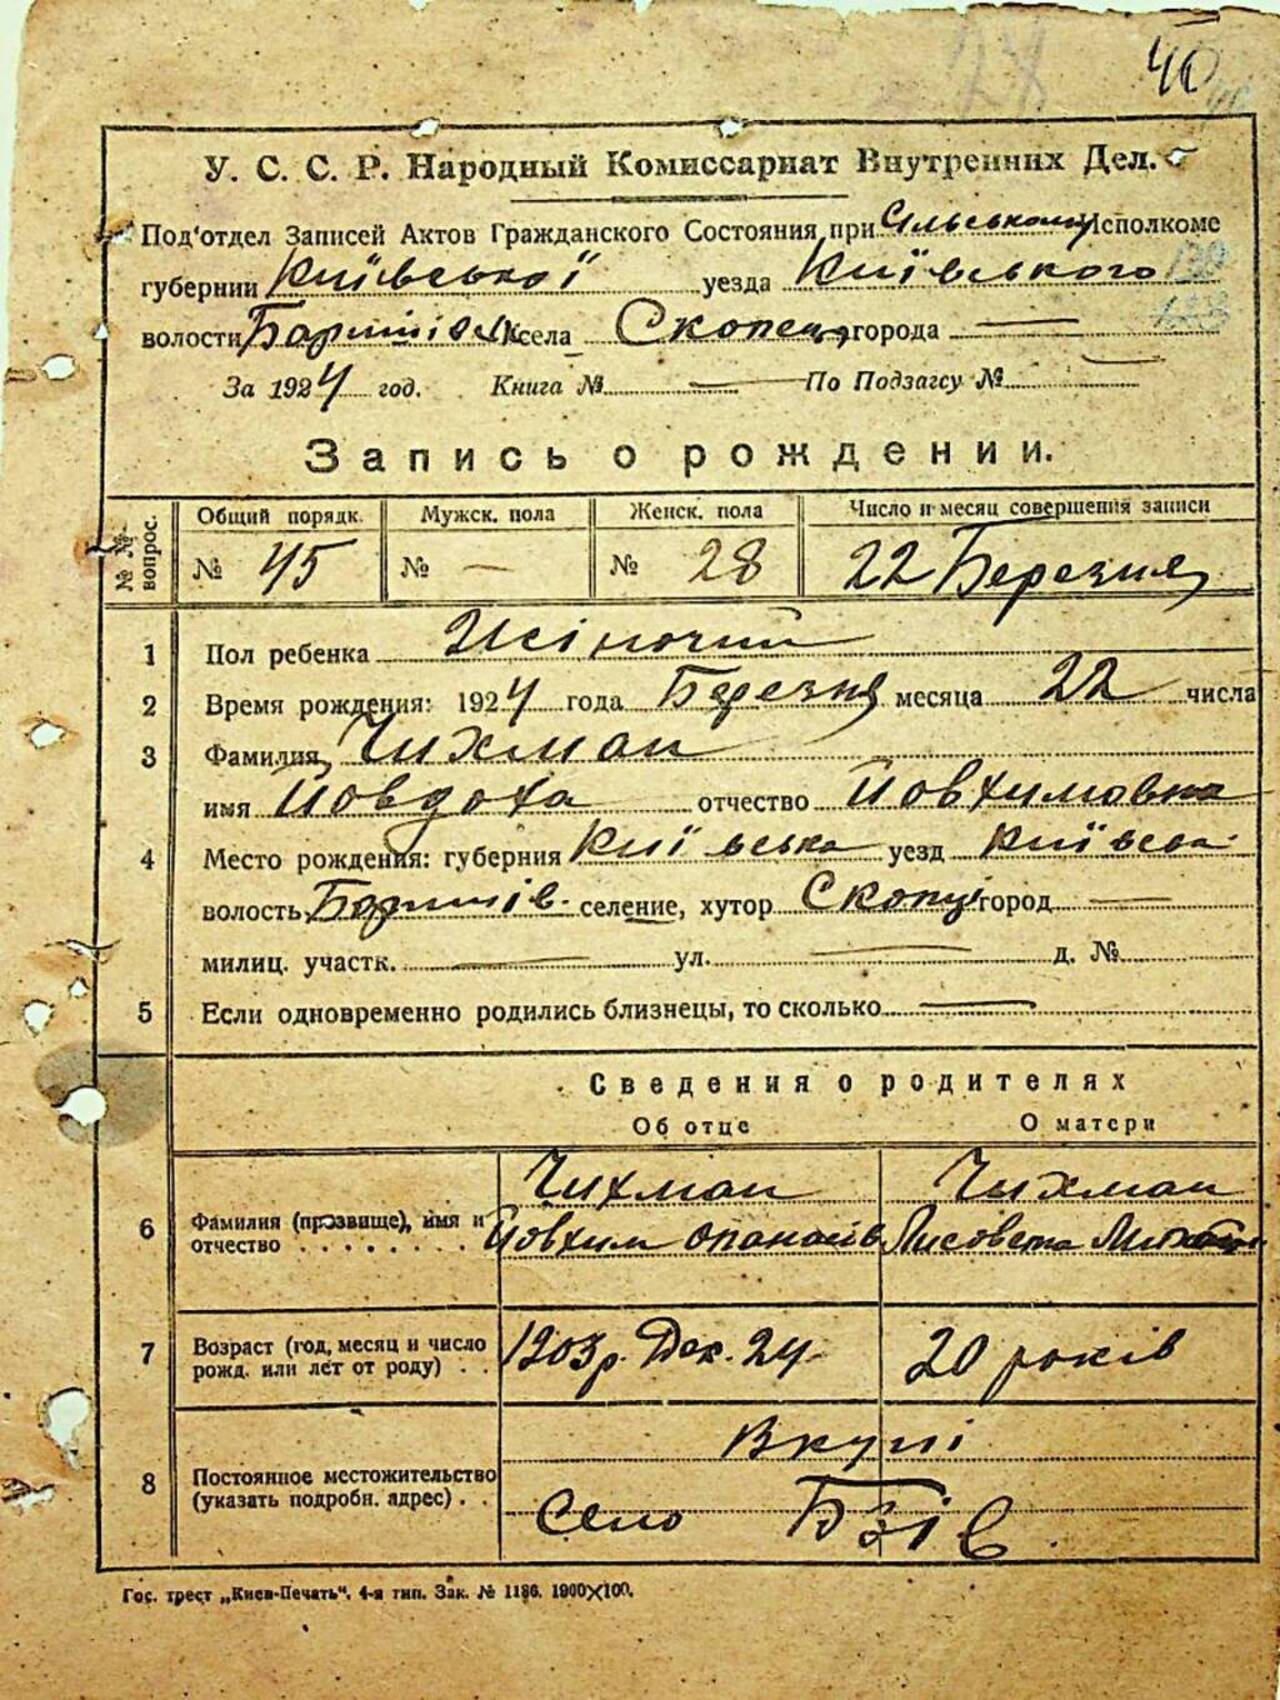 40
У. С. С. Р. Народный Комиссариат Внутренних Дел.
Под'отдел Записей Актов Гражданского Состояния при Сільському Исполкоме
губернии Київської уезда Київського
волости Баришів села Скопец города —
За 1924 год. Книга № — По Подзагсу № —
Запись о рождении.
№ № вопрос. Общий порядк. Мужск. пола Женск. пола Число и месяц совершения записи
№ 45 № — № 28 22 Березня
1 Пол ребенка Жіночий
2 Время рождения: 1924 года Березня месяца 22 числа
3 Фамилия Чихман
имя Йовдоха отчество Йовхимовна
4 Место рождения: губерния Київська уезд Київськ.
волость Баришів. селение, хутор Скопці город —
милиц. участк. — ул. — д. №
5 Если одновременно родились близнецы, то сколько —
Сведения о родителях
Об отце О матери
Чихман Чихман
6 Фамилия (прозвище), имя и Йовхим Опанасів Лисовета
отчество . . . . . . . .
7 Возраст (год, месяц и число 1903 р. Дек. 24 20 років
рожд. или лет от роду) . .
Вкупі
8 Постоянное местожительство
(указать подробн. адрес) . . Село Бзів
Гос. трест „Киев-Печать". 4-я тип. Зак. № 1186. 1900×100.